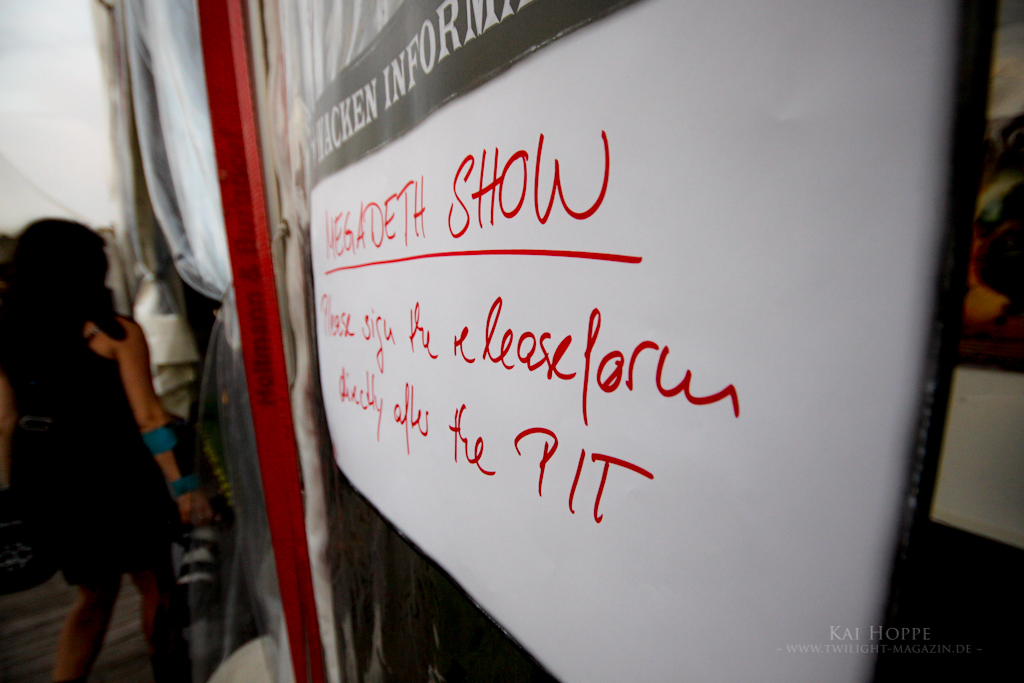 WACKEN INFORMA
MEGADETH SHOW
Please sign the releaseform
directly after the PIT
KAI HOPPE
- WWW.TWILIGHT-MAGAZIN.DE -